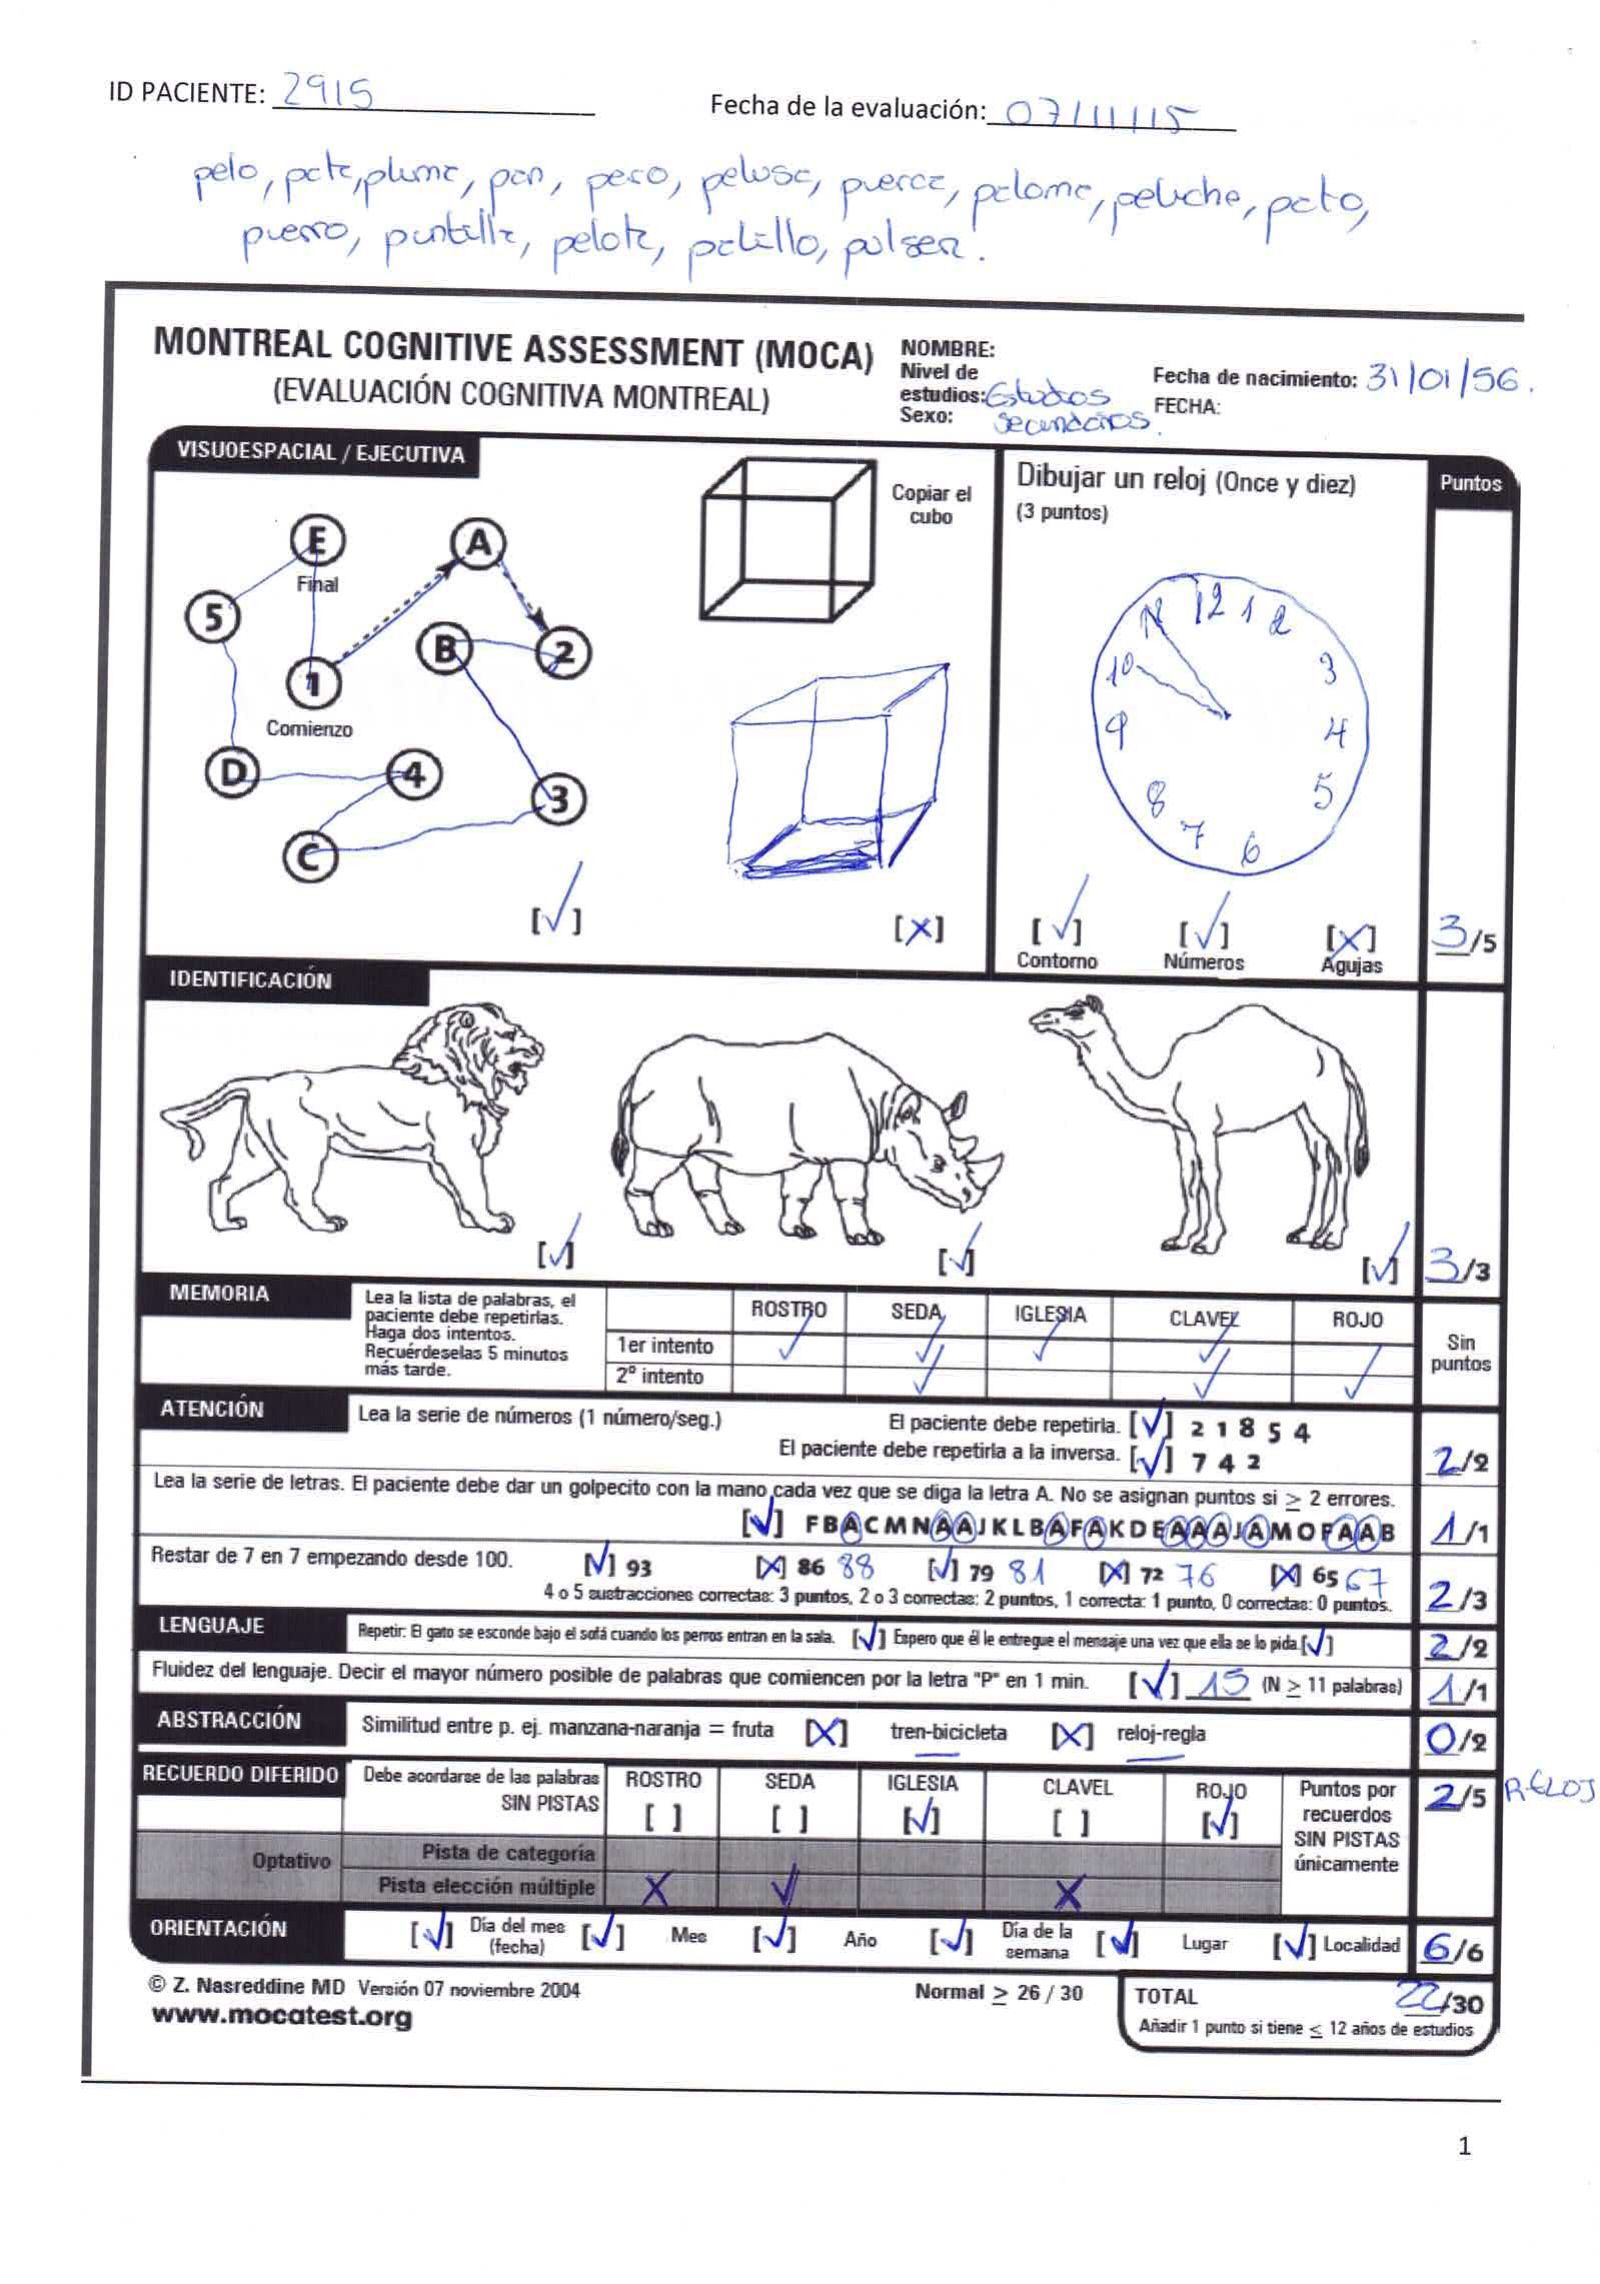 ID PACIENTE: 2915
Fecha de la evaluación: 07/11/15
pelo, pata, pluma, pan, peso, pelusa, puerca, paloma, peluche, pato,
puerro, puntilla, pelota, palillo, pulsera.
MONTREAL COGNITIVE ASSESSMENT (MOCA)
(EVALUACIÓN COGNITIVA MONTREAL)
NOMBRE:
Nivel de
estudios: Estudios
Sexo: Secundarios.
Fecha de nacimiento: 31/01/56.
FECHA:
VISUOESPACIAL / EJECUTIVA
E
Final
A
5
B
2
1
Comienzo
D
4
3
C
[√]
Copiar el
cubo
[X]
Dibujar un reloj (Once y diez)
(3 puntos)
11 12 1 2
10 3
9 4
8 5
7 6
[√] [√] [X]
Contorno Números Agujas
Puntos
3/5
IDENTIFICACIÓN
[√] [√] [√] 3/3
MEMORIA
Lea la lista de palabras, el
paciente debe repetirlas.
Haga dos intentos.
Recuérdeselas 5 minutos
más tarde.
ROSTRO SEDA IGLESIA CLAVEL ROJO
1er intento √ √ √ √
2º intento √ √ √
Sin
puntos
ATENCIÓN
Lea la serie de números (1 número/seg.) El paciente debe repetirla. [√] 2 1 8 5 4
El paciente debe repetirla a la inversa. [√] 7 4 2 2/2
Lea la serie de letras. El paciente debe dar un golpecito con la mano cada vez que se diga la letra A. No se asignan puntos si ≥ 2 errores.
[√] F B A C M N A A J K L B A F A K D E A A A J A M O F A A B 1/1
Restar de 7 en 7 empezando desde 100. [√] 93 [X] 86 88 [√] 79 81 [X] 72 76 [X] 65 67
4 o 5 sustracciones correctas: 3 puntos, 2 o 3 correctas: 2 puntos, 1 correcta: 1 punto, 0 correctas: 0 puntos. 2/3
LENGUAJE
Repetir: El gato se esconde bajo el sofá cuando los perros entran en la sala. [√] Espero que él le entregue el mensaje una vez que ella se lo pida. [√] 2/2
Fluidez del lenguaje. Decir el mayor número posible de palabras que comiencen por la letra "P" en 1 min. [√] 15 (N ≥ 11 palabras) 1/1
ABSTRACCIÓN
Similitud entre p. ej. manzana-naranja = fruta [X] tren-bicicleta [X] reloj-regla 0/2
RECUERDO DIFERIDO
Debe acordarse de las palabras
SIN PISTAS
ROSTRO SEDA IGLESIA CLAVEL ROJO
[ ] [ ] [√] [ ] [√]
Puntos por
recuerdos
SIN PISTAS
únicamente
2/5 RELOJ
Optativo
Pista de categoría
Pista elección múltiple X √ X
ORIENTACIÓN
[√] Día del mes
(fecha)
[√] Mes [√] Año [√] Día de la
semana
[√] Lugar [√] Localidad 6/6
© Z. Nasreddine MD Versión 07 noviembre 2004
www.mocatest.org
Normal ≥ 26 / 30
TOTAL 22/30
Añadir 1 punto si tiene ≤ 12 años de estudios
1